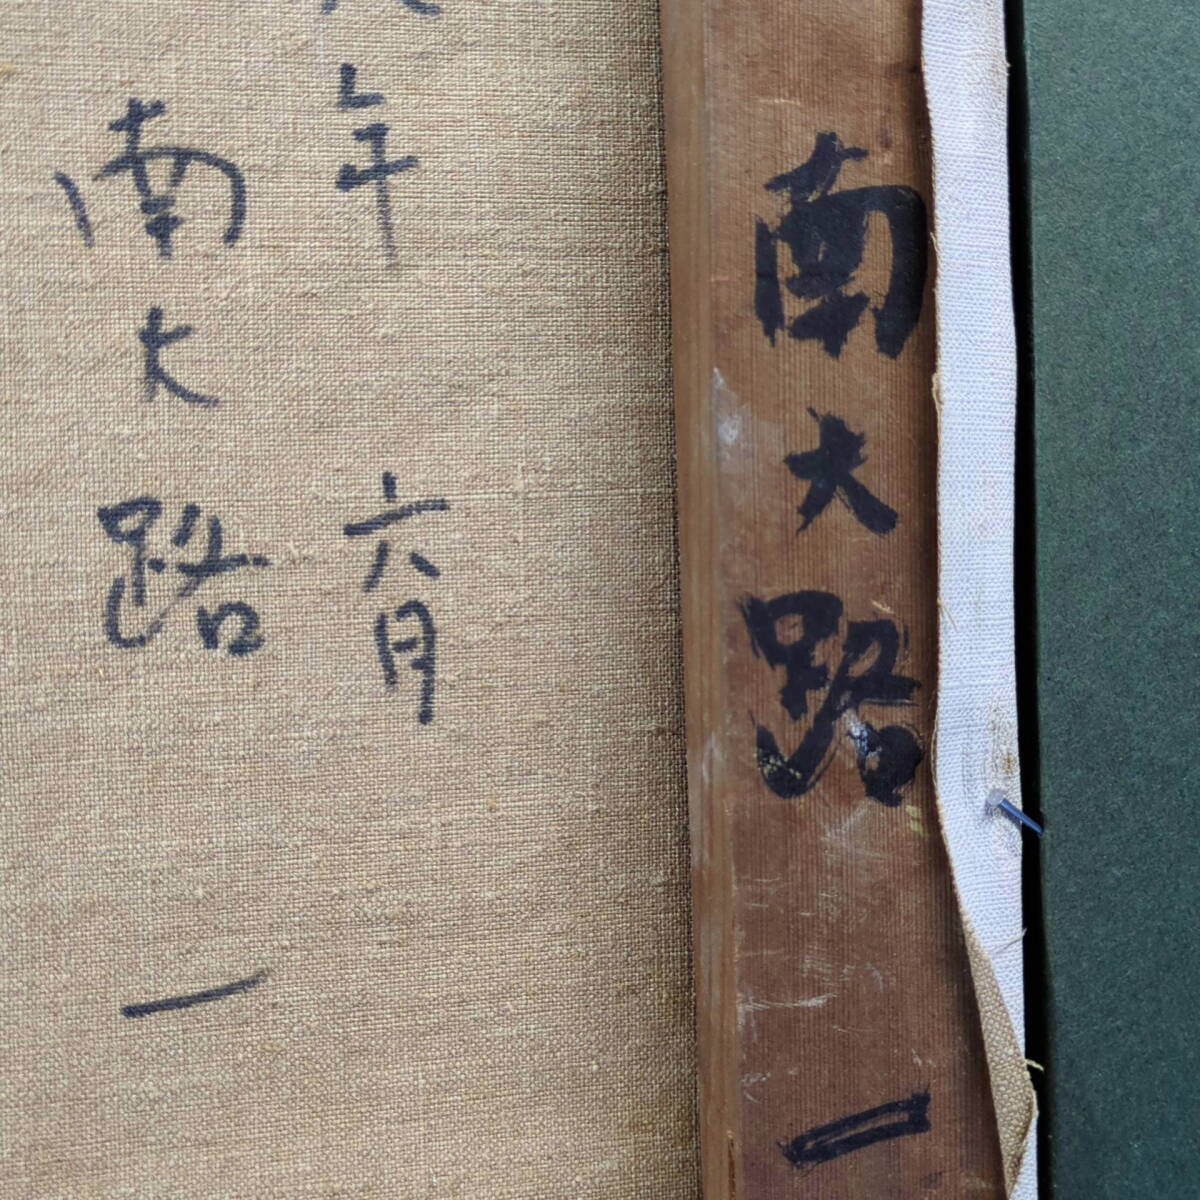 年六月
南大路
一
南大路
一